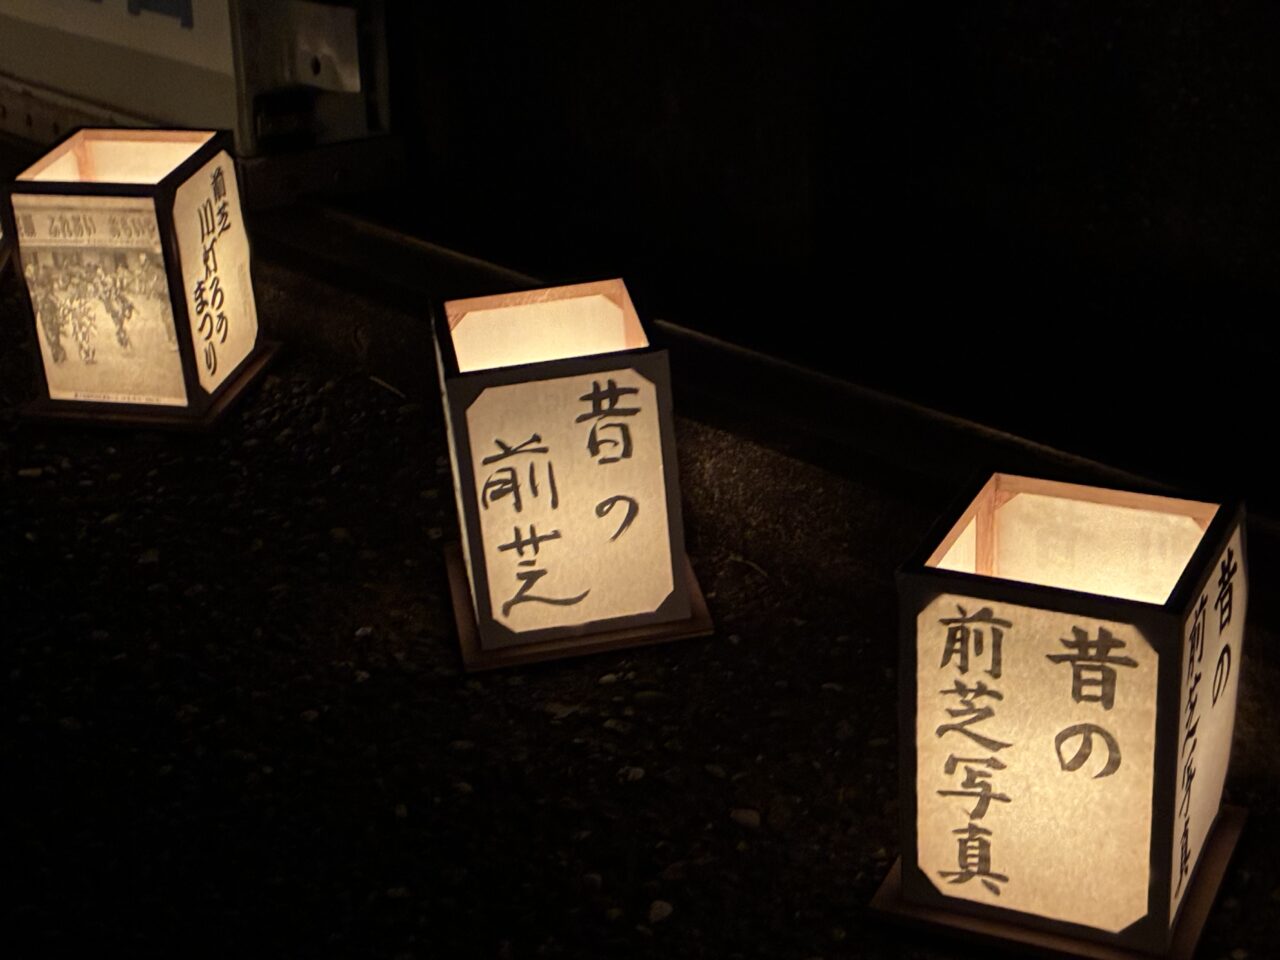 前芝
川灯ろう
まつり
ふれあい
昔の
前芝
昔の
前芝写真
昔の
前芝写真